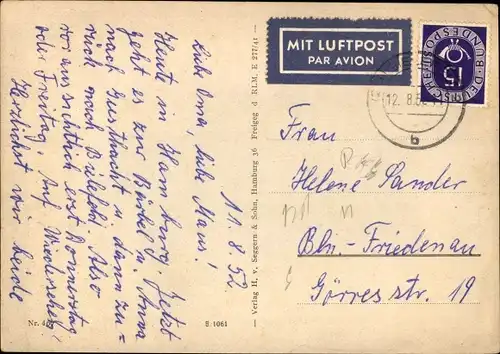 11.8.52
Liebe Oma, liebe Mami!
Heute in Hamburg. Jetzt
geht es zur Bärbel u. Anna
nach Geesthacht u. dann zu-
rück nach Bielefeld. Also
voraussichtlich erst Donnerstag
oder Freitag. Auf Wiedersehen
Herzlichst wir beide
Nr. 4
B 1061
Verlag H. v. Seggern & Sohn, Hamburg 36 Freigeg d RLM. E
MIT LUFTPOST
PAR AVION
DEUTSCHE BUNDESPOST
15
12. 8. 52
b
Frau
Helene Sander
Bln.-Friedenau
Görresstr. 19